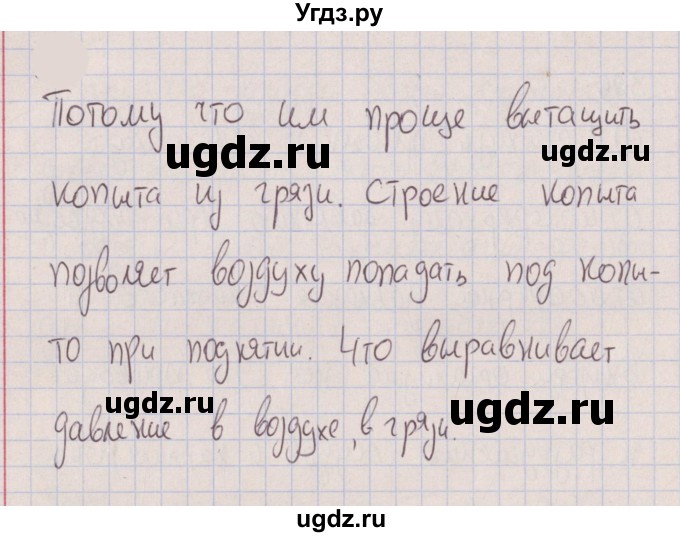 Угдз.ру
Потому что им проще вытащить
ugdz.ru
ugdz.ru
копыта из грязи. Строение копыта
позволяет воздуху попадать под копы-
то при поднятии. Что выравнивает
ugdz.ru
ugdz.ru
давление в воздухе, в грязи.
ugdz.ru